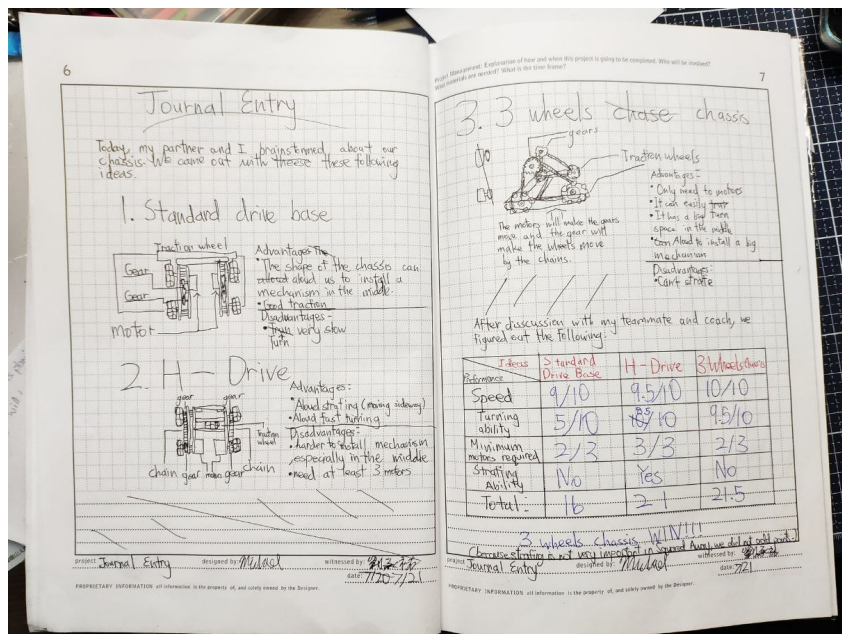 6
Journal Entry
Today, my partner and I brainstormed about our
chassis. We came out with theese these following
ideas.
1. Standard drive base
Traction wheel
Gear
Gear
Motor
Advantages The
• The shape of the chassis can
allowed aloud us to install a
mechanism in the middle.
• Good traction
Disadvantages -
• Train very slow
turn
2. H - Drive
gear gear
Traction
wheel
chain gear motor gear chain
Advantages:
• Aloud strafing (moving sideway)
• Aloud fast turning
Disadvantages -
• harder to install mechanism
especially in the middle
• need at least 3 motors
project Journal Entry designed by: Michael witnessed by:
date: 7/20 7/21
PROPRIETARY INFORMATION all information is the property of, and solely owned by the Designer.
Project Management: Explanation of how and when this project is going to be completed. Who will be involved?
What materials are needed? What is the time frame?
7
3. 3 wheels chase chassis
gears
Traction wheels
The motors will make the gears
move and the gear will
make the wheels move
by the chains.
Advantages -
• Only need to motors
• It can easily turn
• It has a big
space in the middle
• Can Aloud to install a big
mechanism
Disadvantages:
• Can't strafe
After disscussion with my teammate and coach, we
figured out the following:
Ideas Standard Drive Base H - Drive 3 Wheels Chassis
Performance
Speed 9/10 9.5/10 10/10
Turning ability 5/10 8.5/10 9.5/10
Minimum motors required 2/3 3/3 2/3
Strafing Ability No Yes No
Total - 16 21 21.5
3 wheels chassis WIN!!!
Cbecause strafing is not very important in Squared Away we did not add point.
project Journal Entry designed by: Michael witnessed by:
date: 7/21
PROPRIETARY INFORMATION all information is the property of, and solely owned by the Designer.